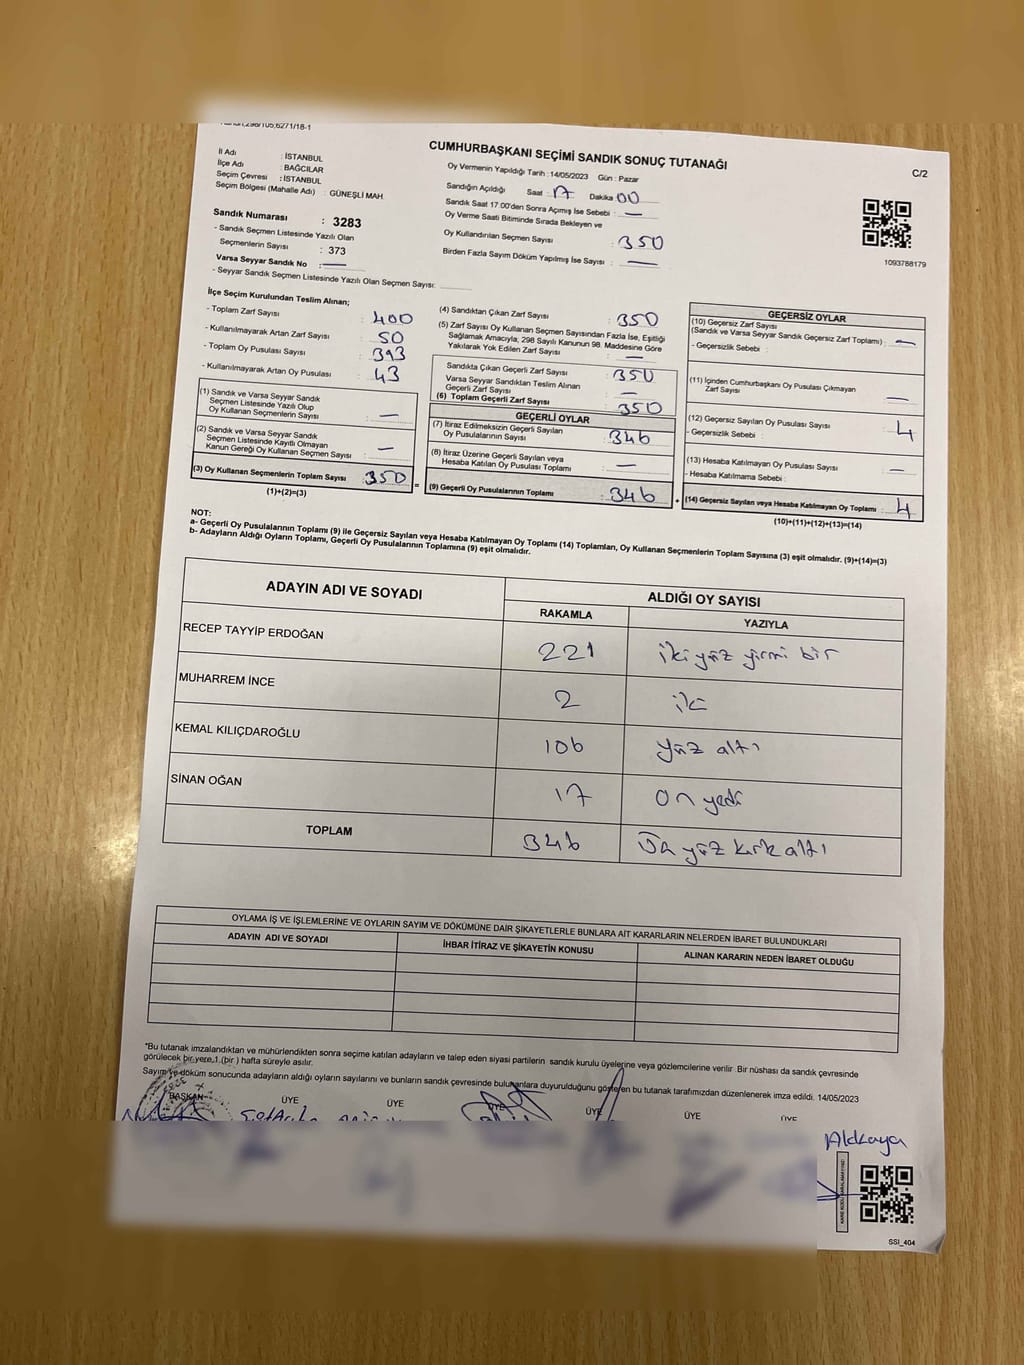 CUMHURBAŞKANI SEÇİMİ SANDIK SONUÇ TUTANAĞI
C/2
İl Adı : İSTANBUL
İlçe Adı : BAĞCILAR
Seçim Çevresi : İSTANBUL
Seçim Bölgesi (Mahalle Adı) : GÜNEŞLİ MAH.
Oy Vermenin Yapıldığı Tarih :14/05/2023 Gün : Pazar
Sandığın Açıldığı Saat : 17 Dakika 00
Sandık Saat 17:00'den Sonra Açımış İse Sebebi : —
Oy Verme Saati Bitiminde Sırada Bekleyen ve
Oy Kullandırılan Seçmen Sayısı : 350
Birden Fazla Sayım Döküm Yapılmış İse Sayısı : —
1093788179
Sandık Numarası : 3283
- Sandık Seçmen Listesinde Yazılı Olan
Seçmenlerin Sayısı : 373
Varsa Seyyar Sandık No : —
- Seyyar Sandık Seçmen Listesinde Yazılı Olan Seçmen Sayısı:
İlçe Seçim Kurulundan Teslim Alınan;
- Toplam Zarf Sayısı : 400
- Kullanılmayarak Artan Zarf Sayısı : 50
- Toplam Oy Pusulası Sayısı : 393
- Kullanılmayarak Artan Oy Pusulası : 43
(1) Sandık ve Varsa Seyyar Sandık
Seçmen Listesinde Yazılı Olup
Oy Kullanan Seçmenlerin Sayısı : —
(2) Sandık ve Varsa Seyyar Sandık
Seçmen Listesinde Kayıtlı Olmayan
Kanun Gereği Oy Kullanan Seçmen Sayısı : —
(3) Oy Kullanan Seçmenlerin Toplam Sayısı : 350
(1)+(2)=(3)
(4) Sandıktan Çıkan Zarf Sayısı : 350
(5) Zarf Sayısı Oy Kullanan Seçmen Sayısından Fazla İse, Eşitliği
Sağlamak Amacıyla; 298 Sayılı Kanunun 98. Maddesine Göre
Yakılarak Yok Edilen Zarf Sayısı : —
Sandıkta Çıkan Geçerli Zarf Sayısı : 350
Varsa Seyyar Sandıktan Teslim Alınan
Geçerli Zarf Sayısı : —
(6) Toplam Geçerli Zarf Sayısı : 350
GEÇERLİ OYLAR
(7) İtiraz Edilmeksizin Geçerli Sayılan
Oy Pusulalarının Sayısı : 346
(8) İtiraz Üzerine Geçerli Sayılan veya
Hesaba Katılan Oy Pusulası Toplamı : —
(9) Geçerli Oy Pusulalarının Toplamı : 346
GEÇERSİZ OYLAR
(10) Geçersiz Zarf Sayısı
(Sandık ve Varsa Seyyar Sandık Geçersiz Zarf Toplamı) : —
- Geçersizlik Sebebi :
(11) İçinden Cumhurbaşkanı Oy Pusulası Çıkmayan
Zarf Sayısı : —
(12) Geçersiz Sayılan Oy Pusulası Sayısı : 4
- Geçersizlik Sebebi :
(13) Hesaba Katılmayan Oy Pusulası Sayısı : —
- Hesaba Katılmama Sebebi :
(14) Geçersiz Sayılan veya Hesaba Katılmayan Oy Toplamı : 4
(10)+(11)+(12)+(13)=(14)
NOT:
a- Geçerli Oy Pusulalarının Toplamı (9) ile Geçersiz Sayılan veya Hesaba Katılmayan Oy Toplamı (14) Toplamları, Oy Kullanan Seçmenlerin Toplam Sayısına (3) eşit olmalıdır. (9)+(14)=(3)
b- Adayların Aldığı Oyların Toplamı, Geçerli Oy Pusulalarının Toplamına (9) eşit olmalıdır.
ADAYIN ADI VE SOYADI ALDIĞI OY SAYISI
RAKAMLA YAZIYLA
RECEP TAYYİP ERDOĞAN 221 iki yüz yirmi bir
MUHARREM İNCE 2 iki
KEMAL KILIÇDAROĞLU 106 yüz altı
SİNAN OĞAN 17 on yedi
TOPLAM 346 Üç yüz kırk altı
OYLAMA İŞ VE İŞLEMLERİNE VE OYLARIN SAYIM VE DÖKÜMÜNE DAİR ŞİKAYETLERLE BUNLARA AİT KARARLARIN NELERDEN İBARET BULUNDUKLARI
ADAYIN ADI VE SOYADI İHBAR İTİRAZ VE ŞİKAYETİN KONUSU ALINAN KARARIN NEDEN İBARET OLDUĞU
*Bu tutanak imzalandıktan ve mühürlendikten sonra seçime katılan adayların ve talep eden siyasi partilerin sandık kurulu üyelerine veya gözlemcilerine verilir. Bir nüshası da sandık çevresinde
görülecek bir yere 1 (bir ) hafta süreyle asılır.
Sayım ve döküm sonucunda adayların aldığı oyların sayılarını ve bunların sandık çevresinde bulunanlara duyurulduğunu gösteren bu tutanak tarafımızdan düzenlenerek imza edildi. 14/05/2023
BAŞKAN ÜYE ÜYE ÜYE ÜYE ÜYE ÜYE
SSI_404